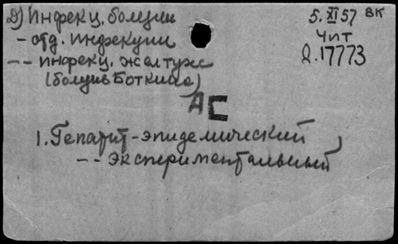 Д) Инфекц. болезни
5. XI 57 ВК
- отд. инфекции
Чит
-- инфекц. желтухе
Д.17773
(болезнь Боткина)
АС
1. Гепатит-эпидемический
-- экспериментальный